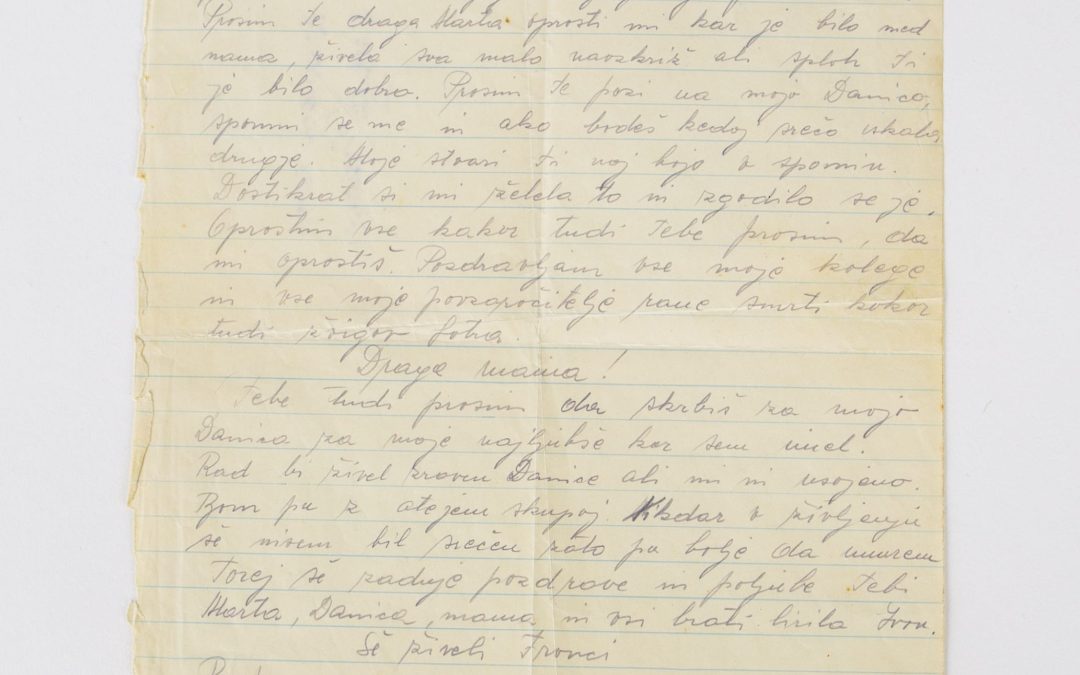 Prosim te draga Marta oprosti mi kar je bilo med
nama, živela sva malo navzkriž ali sploh ti
je bilo dobro. Prosim te pazi na mojo Danico,
spomni se me in ako bodeš kedaj srečo iskala
drugje. Moje stvari ti naj bojo v spominu.
Dostikrat si mi želela to in zgodilo se je.
Oprostim vse kakor tudi tebe prosim, da
mi oprostiš. Pozdravljam vse moje kolege
in vse moje povzročitelje rane smrti kokor
tudi
Draga mama!
Tebe tudi prosim da skrbiš za mojo
Danico za moje najljubše kar sem imel.
Rad bi živel zraven Danice ali mi ni usojeno.
Bom pa z atejem skupaj. Nikdar v življenju
še nisem bil srečen zato pa bolje da umrem
Torej še zadnje pozdrave in poljube Tebi
Marta, Danica, mama in vsi brati
Še živeli Franci